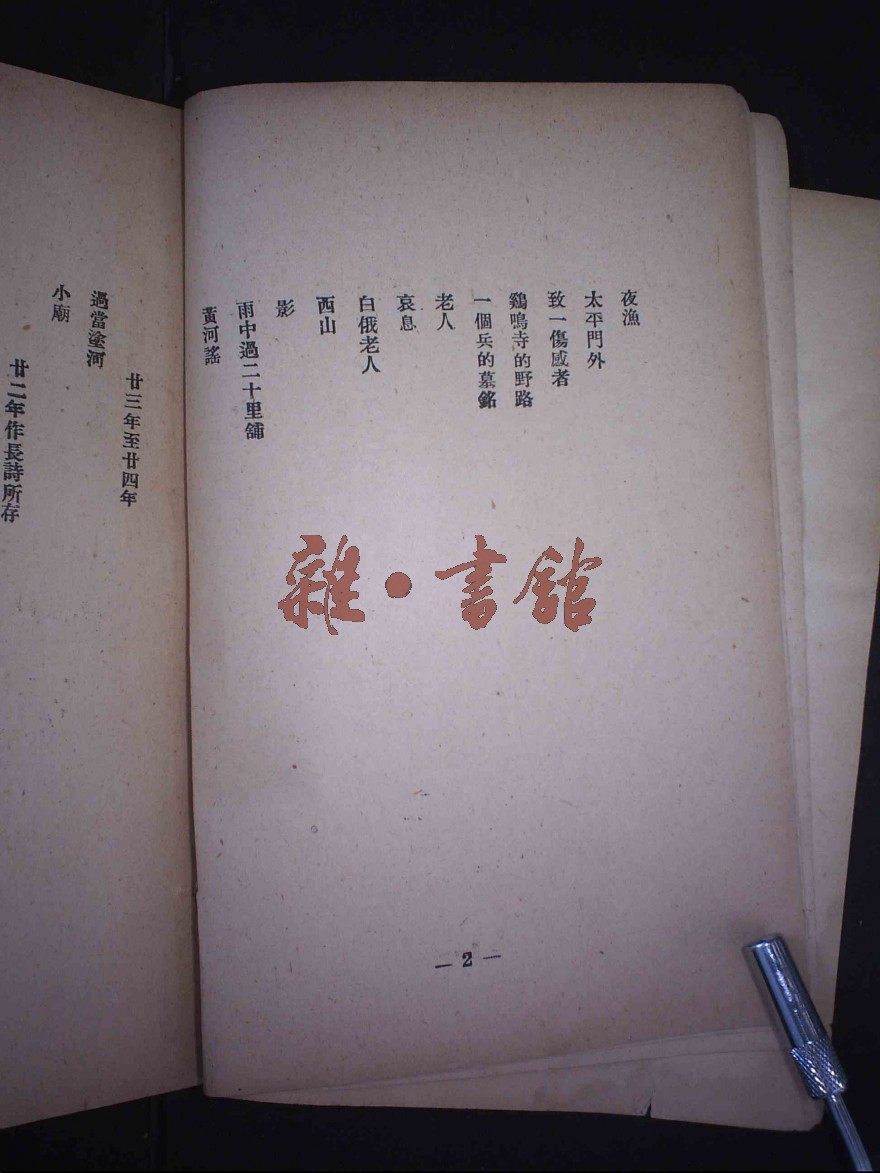 夜漁
太平門外
致一傷感者
鷄鳴寺的野路
一個兵的墓銘
老人
哀息
白俄老人
西山
影
雨中過二十里舖
黃河謠
廿三年至廿四年
過當塗河
小廟
廿二年作長詩所存
雜·書館
— 2 —